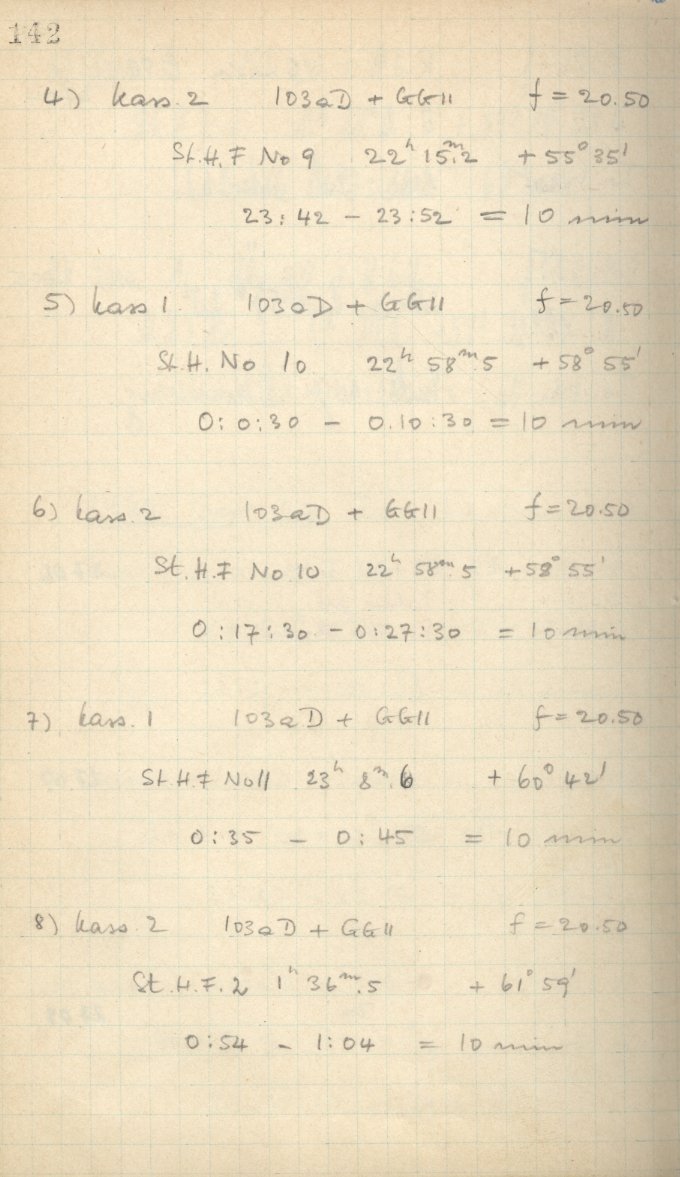 142
4) kass. 2 103aD + GG11 f = 20.50
St.H.F No 9 22h 15m.2 + 55° 35'
23:42 - 23:52 = 10 min
5) kass 1 103aD + GG11 f = 20.50
St.H. No 10 22h 58m.5 + 58° 55'
0:0:30 - 0.10:30 = 10 min
6) kass. 2 103aD + GG11 f = 20.50
St.H.F No 10 22h 58m.5 + 58° 55'
0:17:30 - 0:27:30 = 10 min
7) kass. 1 103aD + GG11 f = 20.50
St.H.F No 11 23h 8m.6 + 60° 42'
0:35 - 0:45 = 10 min
8) kass. 2 103aD + GG11 f = 20.50
St.H.F. 2 1h 36m.5 + 61° 59'
0:54 - 1:04 = 10 min